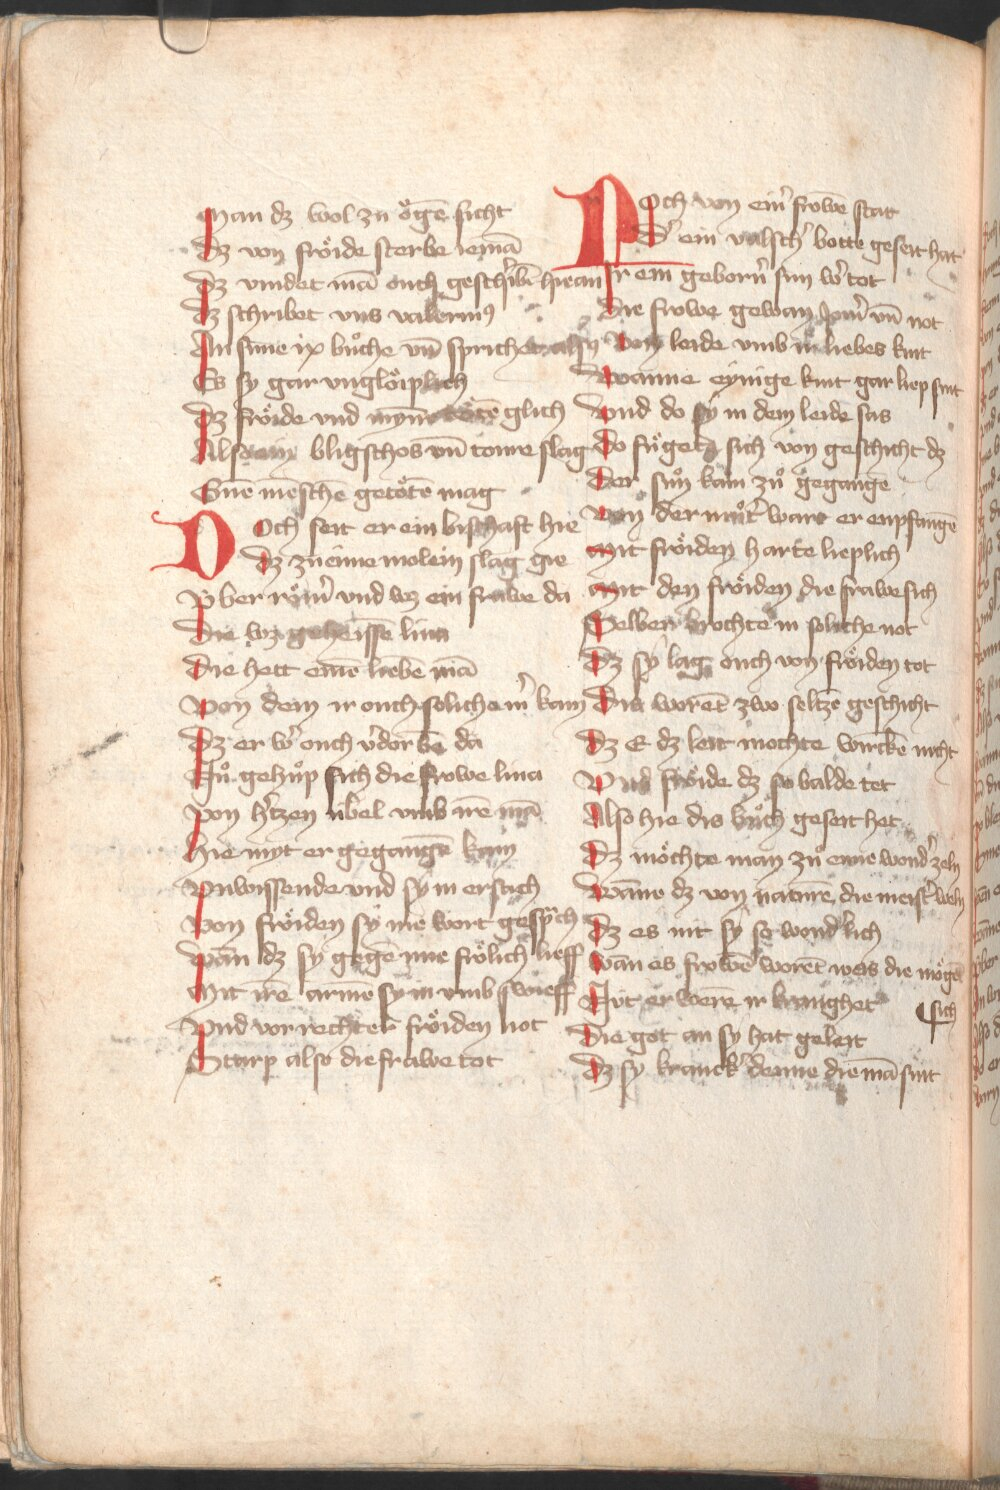 Man dz wol zu oͤgē sicht
Dz von froͤide sterbe iemā
Dz vindet mā ouch geschribē hie an
Dz schribet vns valerius
An sime ix buͦche vn̄ sprichet alsus
Es sy gar vngloͤiplich
Dz froͤide vnd glich
Als ein bligschos vn̄ tonre slag
Einē mēschē getoͤtē mag
Doch seit er ein bischaft hie
Dz zu eime molein slag gie
Vber roͤm̄ vnd wz ein frawe da
Die wz geheisse lina
Die hett einē liebē mā
Von dem ir ouch soliche mˀ kam
Dz er wˀ ouch vˀdorbē da
Nuͦ gehuͦp sich die frowe lina
Von hˀtzen úbel vmb irē mā
Hie myt er gegangē kam
Vnwissende vnd sy in ersach
Von froͤiden sy nie wort gesprach
Wan dz sy gegē ime froͤlich lieff
Mit irē armē sy in vmb swieff
Vnd vor rechter froͤiden not
Starp also die frawe tot
Noch von einˀ frowē stat
Dˀ ein valschˀ botte geseit hat
Ir ein gebornˀ sun wˀ tot
Die frowe gewan jomˀ vn̄ not
Von leide vmb ir liebes kint
Wanne eynige kint gar liep sint
Vnd do sy in dem leide sas
Do fuͤget sich von geschicht dz
Der sun kam zuͦ gegangē
Von der muͦtˀ wart er enpfangē
Mit froͤiden harte lieplich
Mit den froͤiden die frawe sich
Selber brochte in soliche not
Dz sy lag ouch von froͤiden tot
Dis worēt zwo seltzē geschicht
Dz E dz leit mochte wirckē nicht
Vnd froͤide dz so balde tet
Also hie dis buͦch geseit het
Dz moͤchte man zu eime wondˀ zeln
Wāne dz von naturē die meistˀ weln
Dz es nit sy so wondˀlich
Wan es frowē worēt weis die moͤgēt
sich
Nit er werē ir krangheit
Die got an sy hat geleit
Dz sy kranckˀ denne die mā sint